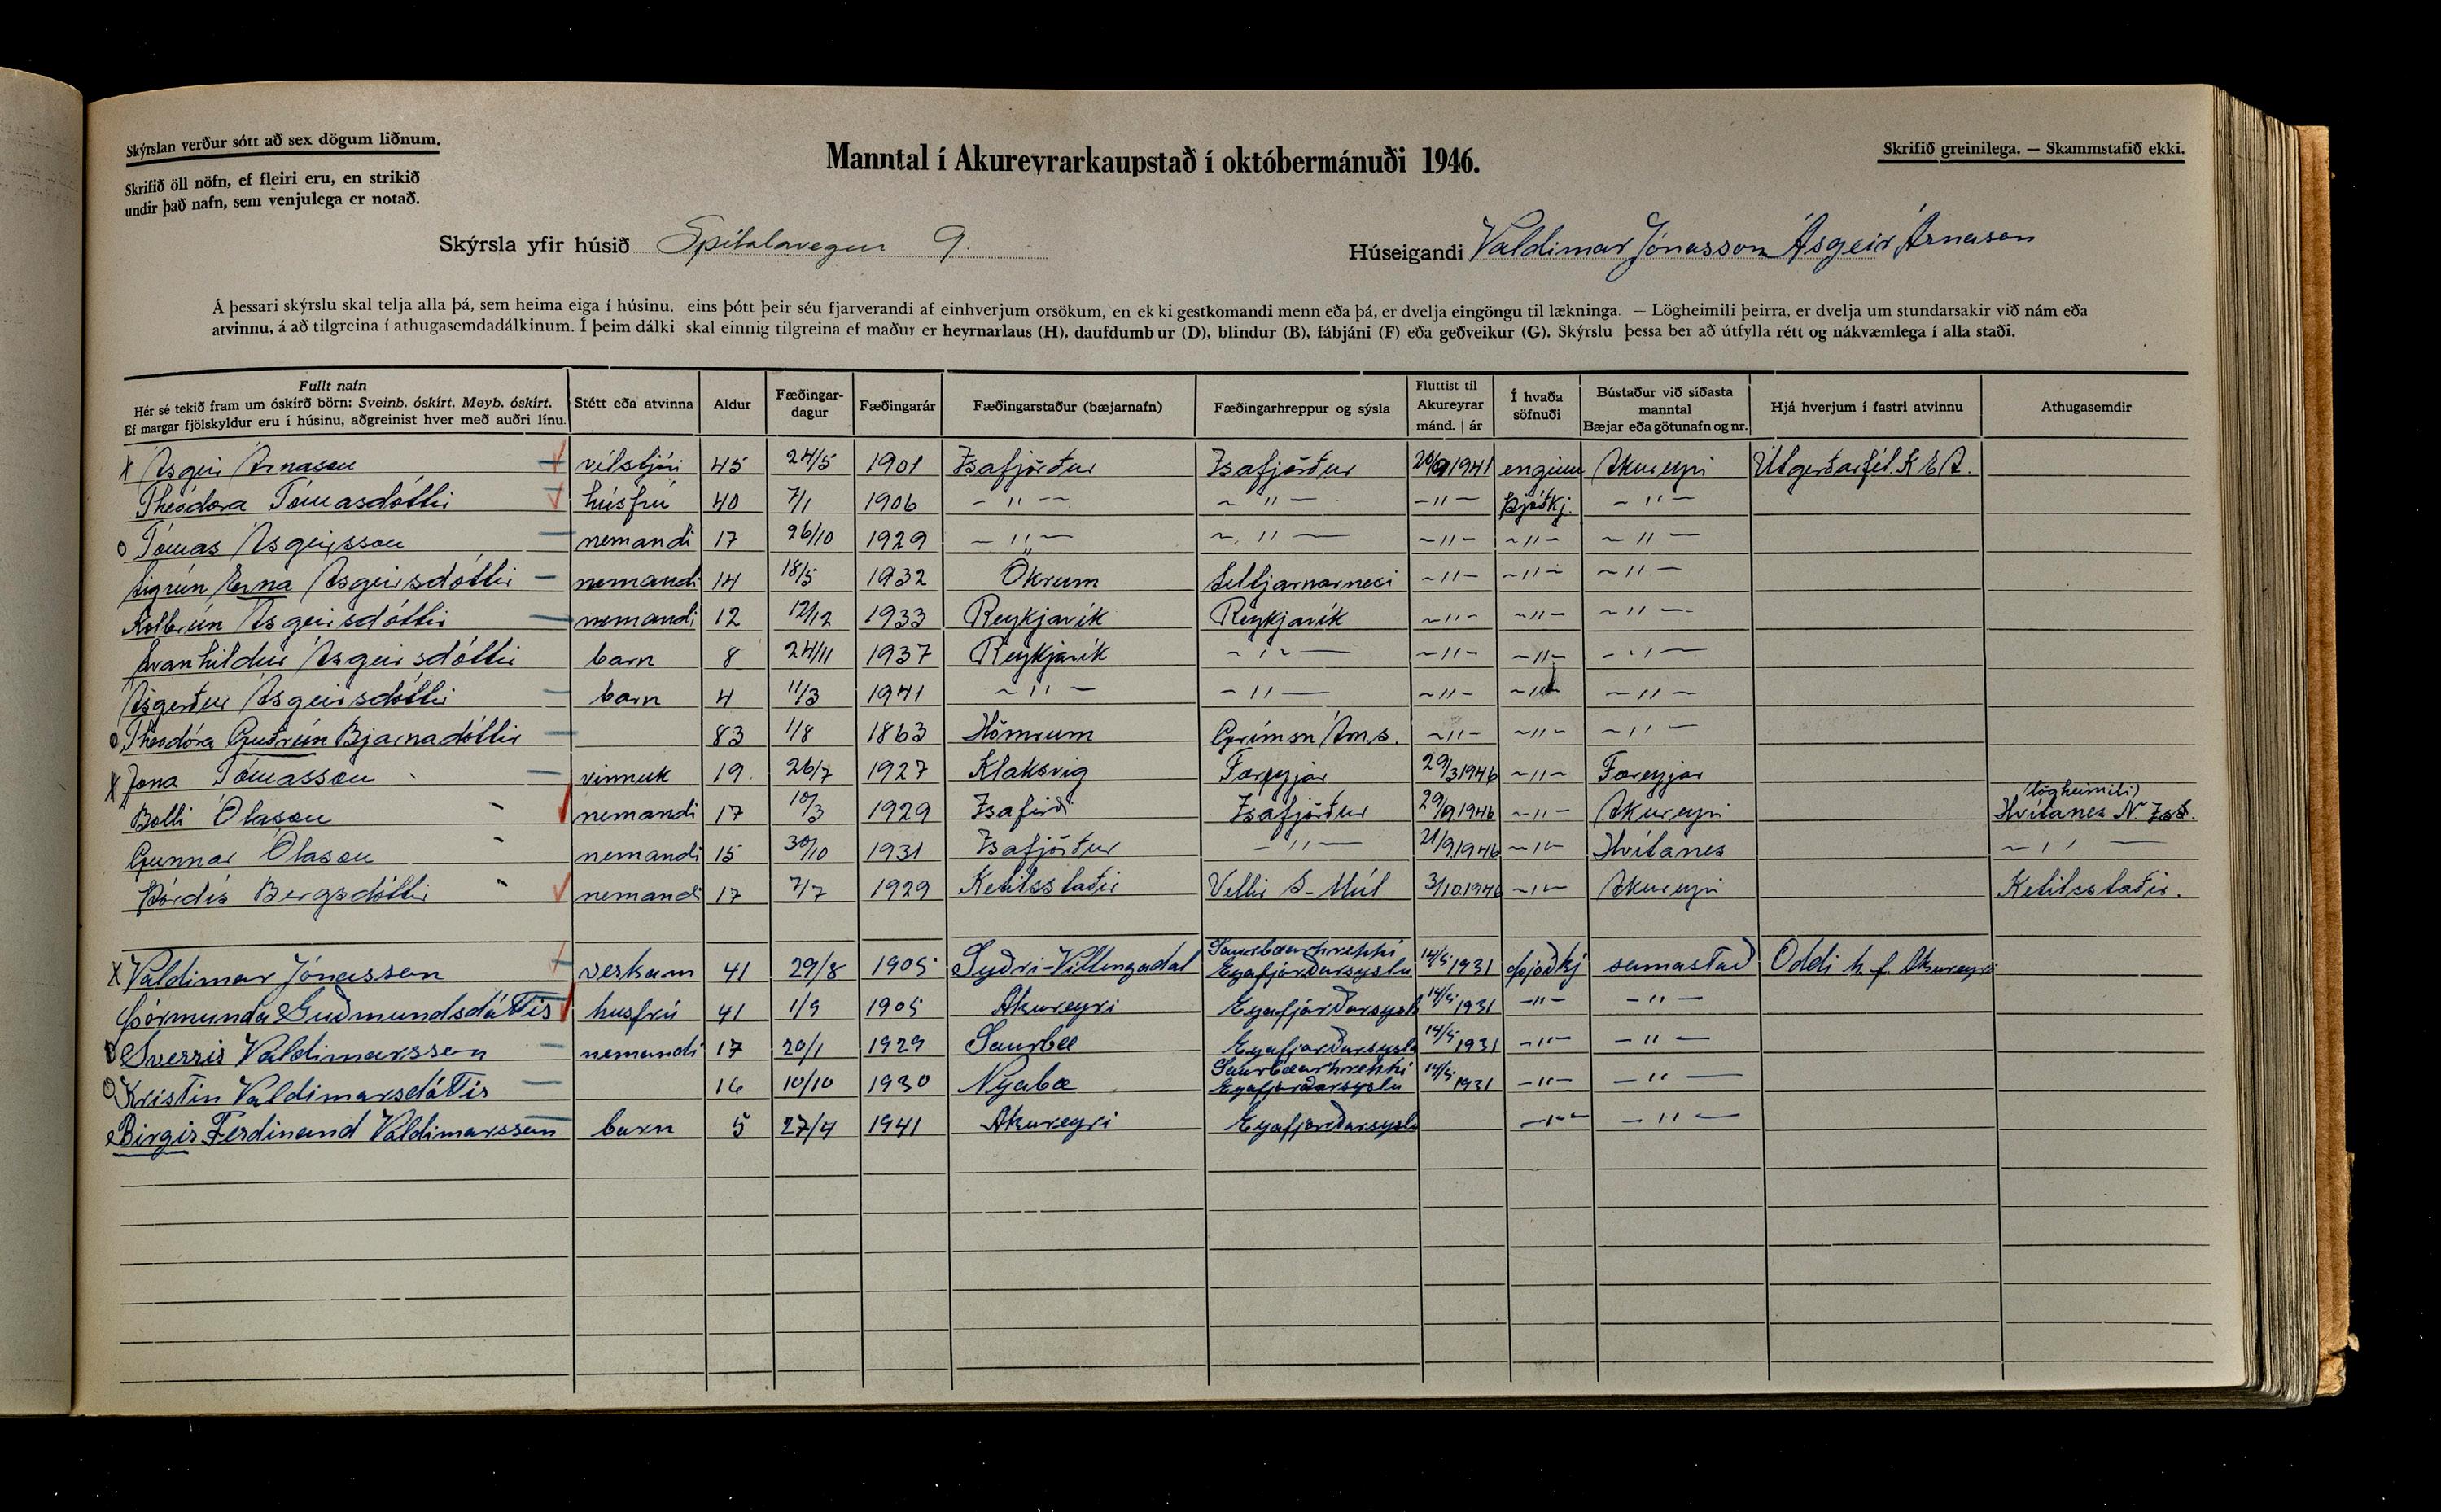 Skýrslan verður sótt að sex dögum liðnum.
Skrifið öll nöfn, ef fleiri eru, en strikið
undir það nafn, sem venjulega er notað.
Manntal í Akureyrarkaupstað í októbermánuði 1946.
Skrifið greinilega. — Skammstafið ekki.
Skýrsla yfir húsið Spítalavegur 9.
Húseigandi Valdimar Jónasson Ásgeir Árnason
Á þessari skýrslu skal telja alla þá, sem heima eiga í húsinu, eins þótt þeir séu fjarverandi af einhverjum orsökum, en ekki gestkomandi menn eða þá, er dvelja eingöngu til lækninga. — Lögheimili þeirra, er dvelja um stundarsakir við nám eða
atvinnu, á að tilgreina í athugasemdadálkinum. Í þeim dálki skal einnig tilgreina ef maður er heyrnarlaus (H), daufdumbur (D), blindur (B), fábjáni (F) eða geðveikur (G). Skýrslu þessa ber að útfylla rétt og nákvæmlega í alla staði.
Fullt nafn
Hér sé tekið fram um óskírð börn: Sveinb. óskírt. Meyb. óskírt.
Ef margar fjölskyldur eru í húsinu, aðgreinist hver með auðri línu.
Stétt eða atvinna
Aldur
Fæðingar-
dagur
Fæðingarár
Fæðingarstaður (bæjarnafn)
Fæðingarhreppur og sýsla
Fluttist til
Akureyrar
mánd. | ár
Í hvaða
söfnuði
Bústaður við síðasta
manntal
Bæjar eða götunafn og nr.
Hjá hverjum í fastri atvinnu
Athugasemdir
x Ásgeir Árnason vélstjóri 45 24/5 1901 Ísafjörður Ísafjörður 20/9 1941 engum Akureyri Útgerðarfél. K E A.
Theódóra Tómasdóttir húsfrú 40 7/1 1906 – " – – " – – " – Þjóðkj. – " –
o Tómas Ásgeirsson nemandi 17 26/10 1929 – " – – " – – " – – " – – " –
Sigrún Erna Ásgeirsdóttir nemandi 14 18/5 1932 Ökrum Seltjarnarnesi – " – – " – – " –
Kolbrún Ásgeirsdóttir nemandi 12 12/12 1933 Reykjavík Reykjavík – " – – " – – " –
Svanhildur Ásgeirsdóttir barn 8 24/11 1937 Reykjavík – " – – " – – " – – " –
Ásgerður Ásgeirsdóttir barn 4 11/3 1941 – " – – " – – " – – " – – " –
o Theodóra Guðrún Bjarnadóttir 83 1/8 1863 Hömrum Grímsn Árns. – " – – " – – " –
x Jona Tómasson vinnuk 19 26/7 1927 Klaksvig Færeyjar 29/3 1946 – " – Færeyjar
Bolli Ólason nemandi 17 10/3 1929 Ísafirði Ísafjörður 29/9 1946 – " – Akureyri (lögheimili) Hvítanes N. Íss.
Gunnar Ólason nemandi 15 30/10 1931 Ísafjörður – " – 21/9 1946 – " – Hvítanes – " –
Þórdís Bergsdóttir nemandi 17 7/7 1929 Ketilsstaðir Vellir S-Múl 3/10 1946 – " – Akureyri Ketilsstaðir.
x Valdimar Jónasson verkam 41 29/8 1905 Syðri-Villingadal Saurbæarhreppi Eyafjarðarsyslu 14/5 1931 þjóðkj samastað Oddi h.f. Akureyri
Þórmunda Guðmundsdóttir husfrú 41 1/9 1905 Akureyri Eyafjarðarsysl 14/5 1931 – " – – " –
o Sverrir Valdimarsson nemandi 17 20/1 1929 Saurbæ Eyafjarðarsysl 14/5 1931 – " – – " –
o Kristín Valdimarsdóttir 16 10/10 1930 Nyabæ Saurbæarhreppi Eyafjarðarsyslu 14/5 1931 – " – – " –
o Birgir Ferdinand Valdimarsson barn 5 27/4 1941 Akureyri Eyafjarðarsysl – " – – " –